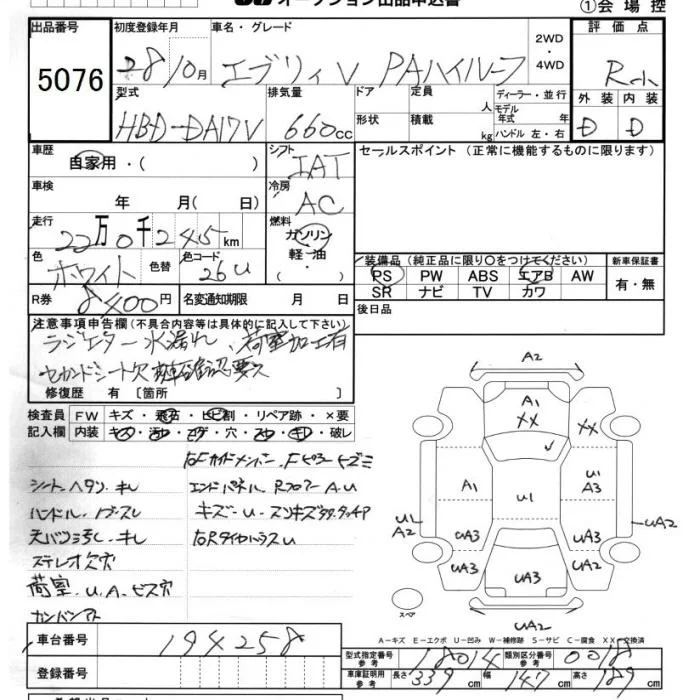 オークション出品申込書
①会場控
出品番号 初度登録年月 車名・グレード 2WD・4WD 評価点
5076 28/10月 エブリィV PAハイルーフ R小
型式 排気量 ドア 定員 人 ディーラー・並行 外装 内装
HBD-DA17V 660cc 形状 積載 kg モデル年式 年 ハンドル 左・右 D D
車歴 シフト セールスポイント (正常に機能するものに限ります)
自家用・( ) IAT
車検 冷房
年 月( 日) AC
走行 燃料
22万0千245km ガソリン・軽油・( )
色 色替 色コード
ホワイト 26U
装備品 (純正品に限り○をつけてください) 新車保証書
PS PW ABS エアB AW 有・無
SR ナビ TV カワ
R券 8400円 名変通知期限 月 日 後日品
注意事項申告欄(不具合内容等は具体的に記入して下さい)
ラジエター水漏れ、荷室加工有
セカンドシート欠 車確認要
修復歴 有 〔箇所 〕
検査員記入欄 FW キズ・飛石・ヒビ割・リペア跡・×要
内装 キズ・汚・コゲ・穴・スレ・キレ・破レ
シートヘタリ・キレ エンドパネル、RフロアーA、U
ステレオ欠穴
荷室、U、A、ビス穴
A2
A1
XX XX
A1 U1 U1
A3
U1
A2
UA2
UA3 UA3
UA3 UA3 UA2
UA2
スペア
A―キズ E―エクボ U―凹み W―補修跡 S―サビ C―腐食 XX―交換済
車台番号 194258
登録番号
型式指定番号 参考 18014 類別区分番号 参考 0018
車庫証明用 参考 長さ 339cm 幅 147cm 高さ 189cm